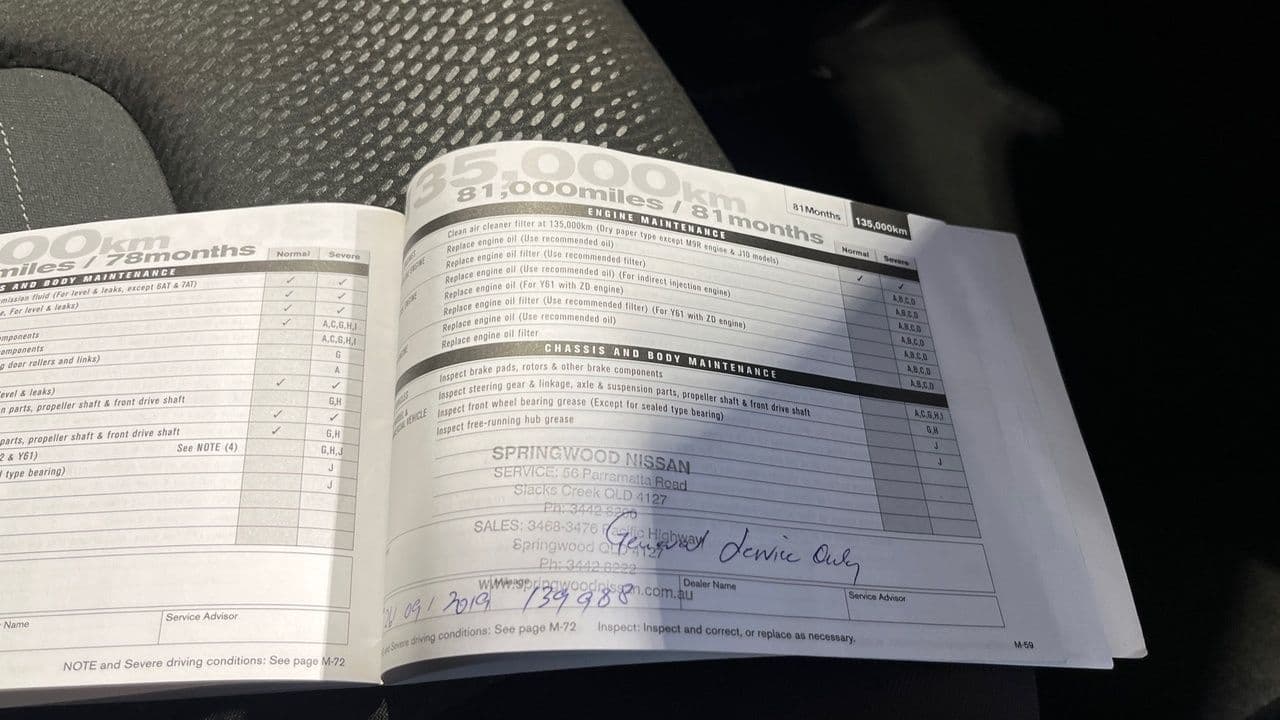 00km
miles / 78months
Normal Severe
S AND BODY MAINTENANCE
mission fluid (For level & leaks, except 6AT & 7AT) ✓ ✓
e, For level & leaks) ✓ ✓
✓ ✓
✓ A,C,G,H,I
mponents A,C,G,H,I
omponents G
g door rollers and links) A
✓ ✓
evel & leaks) G,H
n parts, propeller shaft & front drive shaft ✓ ✓
✓ G,H
parts, propeller shaft & front drive shaft G,H,J
2 & Y61) See NOTE (4) J
type bearing) J
Name
Service Advisor
NOTE and Severe driving conditions: See page M-72
35,000km
81,000miles / 81months
81Months 135,000km
Normal Severe
ENGINE MAINTENANCE
Clean air cleaner filter at 135,000km (Dry paper type except M9R engine & J10 models) ✓ ✓
Replace engine oil (Use recommended oil) A,B,C,D
Replace engine oil filter (Use recommended filter) A,B,C,D
Replace engine oil (Use recommended oil) (For indirect injection engine) A,B,C,D
Replace engine oil (For Y61 with ZD engine) A,B,C,D
Replace engine oil filter (Use recommended filter) (For Y61 with ZD engine) A,B,C,D
Replace engine oil (Use recommended oil) A,B,C,D
Replace engine oil filter A,B,C,D
CHASSIS AND BODY MAINTENANCE
Inspect brake pads, rotors & other brake components A,C,G,H,I
Inspect steering gear & linkage, axle & suspension parts, propeller shaft & front drive shaft G,H
VEHICLE Inspect front wheel bearing grease (Except for sealed type bearing) J
Inspect free-running hub grease J
SPRINGWOOD NISSAN
SERVICE: 56 Parramatta Road
Slacks Creek QLD 4127
Ph: 3442 8200
SALES: 3468-3476 Pacific Highway
Springwood QLD 4127
Ph: 3442 8222
www.springwoodnissan.com.au
General Service Only
Mileage Dealer Name Service Advisor
09 / 2019 139988
Severe driving conditions: See page M-72 Inspect: Inspect and correct, or replace as necessary.
M-59